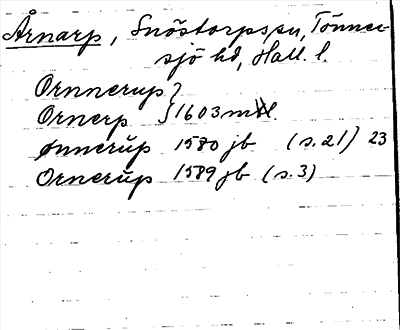 Årnarp, Snöstorps sn, Tönner-
sjö hd, Hall. l.
Ornnerup }
Ornerp } 1603 mtl.
Ønnerŭp 1580 jb (s. 21) 23
Ornerŭp 1589 jb (s. 3)